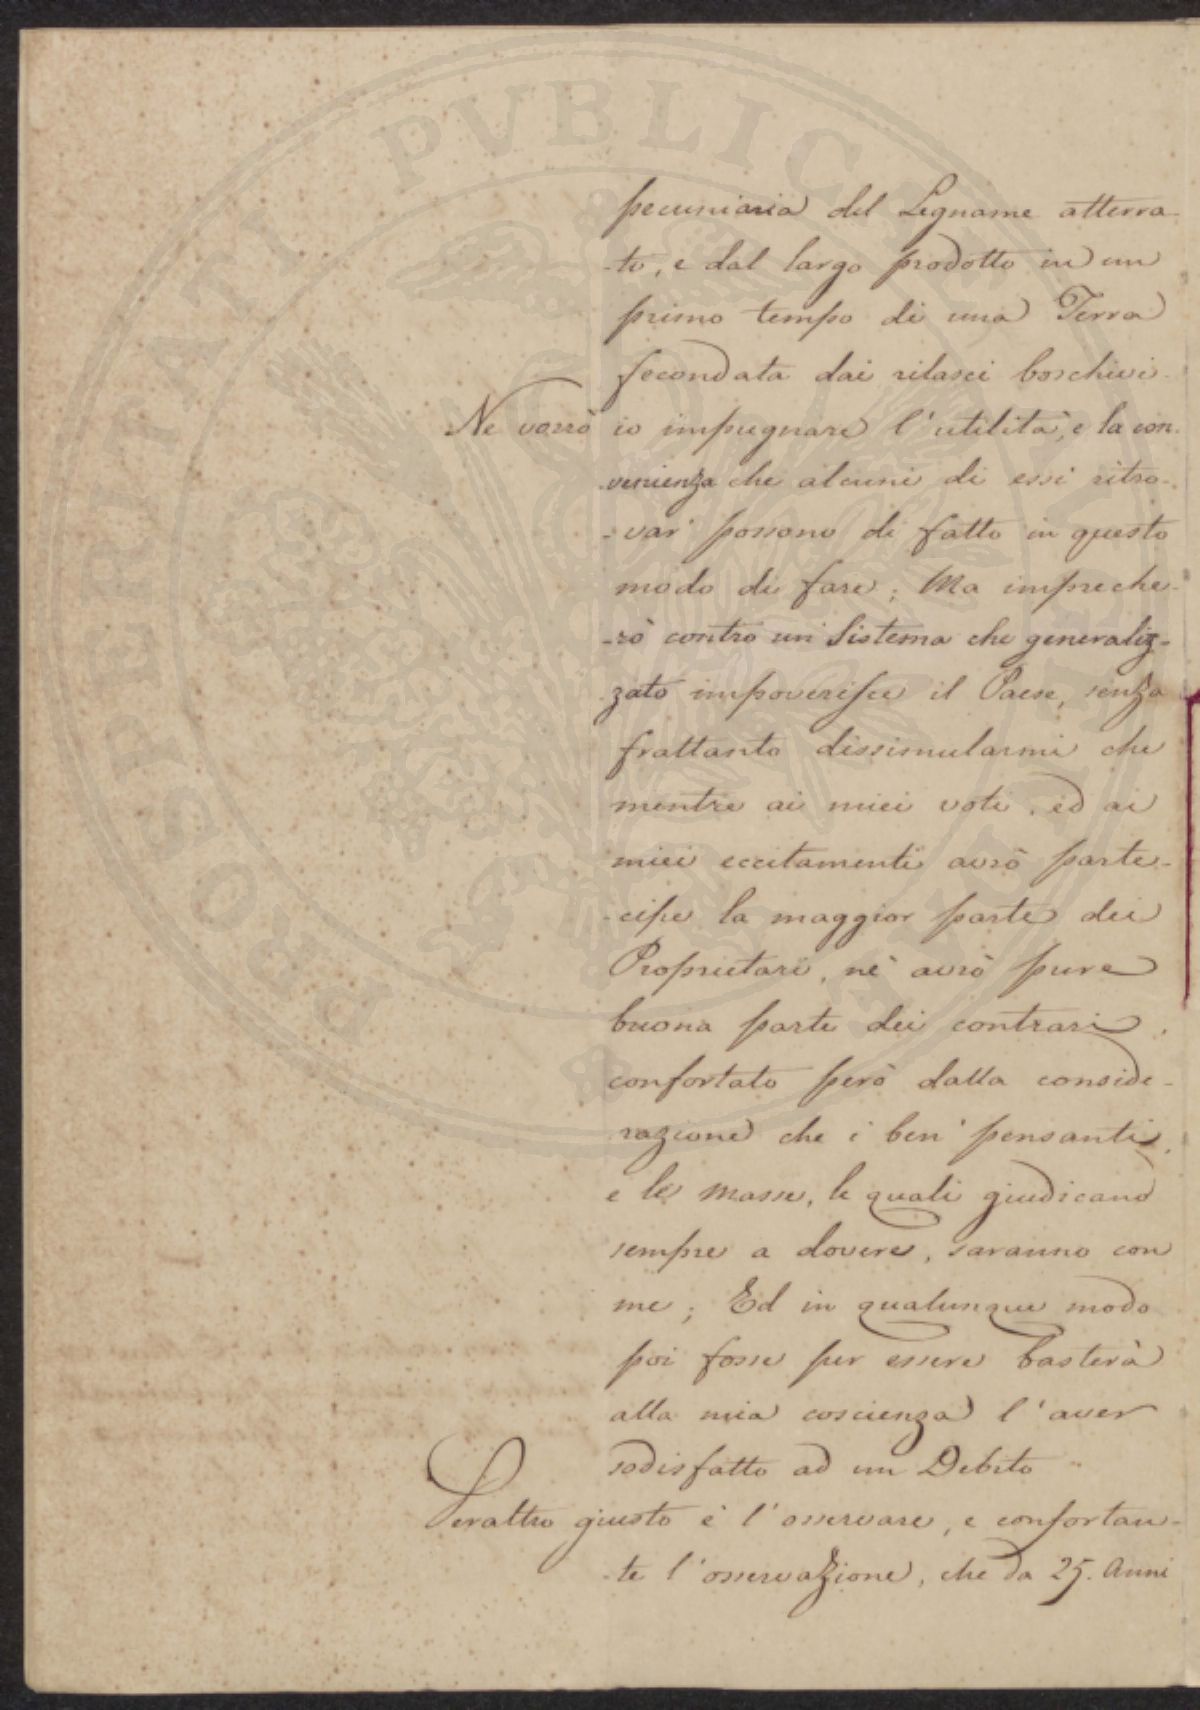 pecuniaria del Legname atterra-
-to, e dal largo prodotto in un
primo tempo di una Terra
fecondata dai rilasci boschivi.
Ne vorrò io impugnare l'utilità, e la con-
-venienza che alcuni di essi ritro-
-var possono di fatto in questo
modo di fare; Ma impreche-
-rò contro un Sistema che generaliz-
zato impoverisce il Paese, senza
frattanto dissimularmi che
mentre ai miei voti, ed ai
miei eccitamenti avrò parte-
-cipe la maggior parte dei
Proprietari, nè avrò pure
buona parte dei contrari,
confortato però dalla conside-
razione che i ben' pensanti,
e le masse, le quali giudicano
sempre a dovere, saranno con
me; Ed in qualunque modo
poi fosse per essere basterà
alla mia coscienza l'aver
sodisfatto ad un Debito
Peraltro giusto è l'osservare, e confortan-
-te l'osservazione, che da 25. Anni
PROSPERITATI PVBLICAE